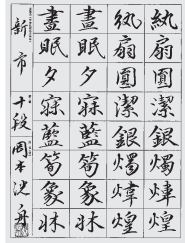 紈扇圓潔銀燭煒煌
紈扇圓潔銀燭煒煌
晝眠夕寐藍筍象牀
晝眠夕寐藍筍象牀
新市 十段 岡本 舟